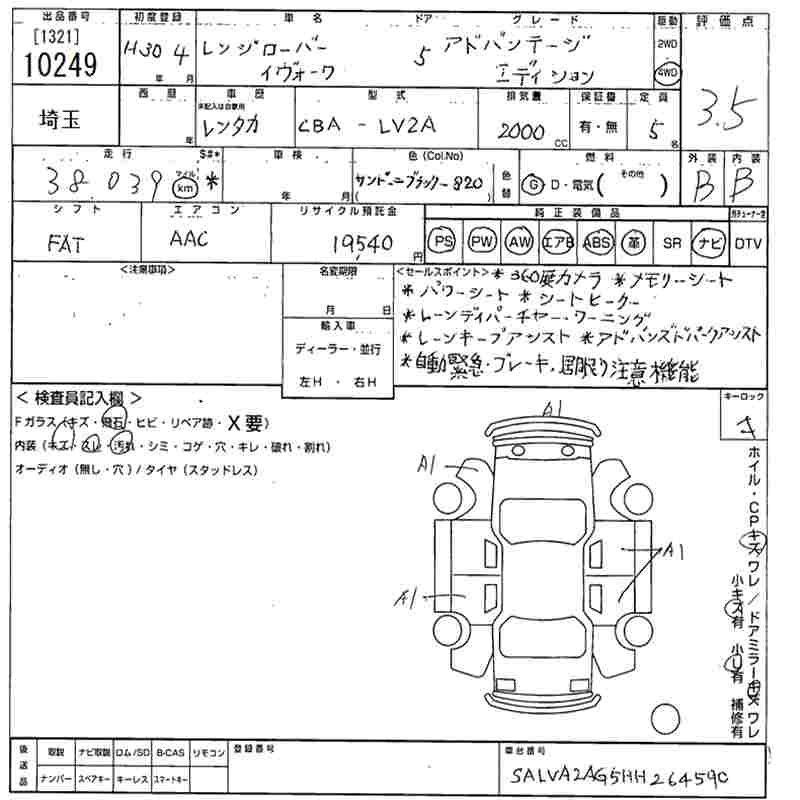 出品番号 初度登録 車名 ドア グレード 駆動 評価点
[1321]
10249
H30 4 年 月
レンジローバー
イヴォーク
5
アドバンテージ
エディション
2WD
4WD
3.5
埼玉
西暦 年
車歴
未記入は自家用
レンタカ
型式
CBA - LV2A
排気量
2000 CC
保証書
有・無
定員
5 名
走行 S#*
38.039 マイル km *
車検
年 月
色 (Col,No)
サントリーニブラック-820
色替
燃料
G D・電気( その他 )
外装 内装
B B
シフト エアコン リサイクル預託金 純正装備品
FAT AAC 19540 円
PS PW AW エアB ABS 革 SR ナビ DTV
<注意事項>
名変期限
月 日
輸入車
ディーラー・並行
左H ・ 右H
<セールスポイント>* 360度カメラ *メモリーシート
* パワーシート * シートヒーター
*レーンディパーチャー・ワーニング
*レーンキープアシスト *アドバンスドパークアシスト
*自動緊急・ブレーキ,居眠り注意機能
< 検査員記入欄 >
Fガラス(キズ・飛石・ヒビ・リペア跡・X要)
内装(キズ・スレ・汚れ・シミ・コゲ・穴・キレ・破れ・割れ)
オーディオ(無し・穴)/タイヤ(スタッドレス)
キーロック
A1
A1
A1
A1
ホイル・CPキズワレ/ドアミラーキズワレ
小キズ有 小U有 補修有
後送品
取説 ナビ取説 ロム/SD B-CAS リモコン
ナンバー スペアキー キーレス スマートキー
登録番号
車台番号
SALVA2AG5HH264590